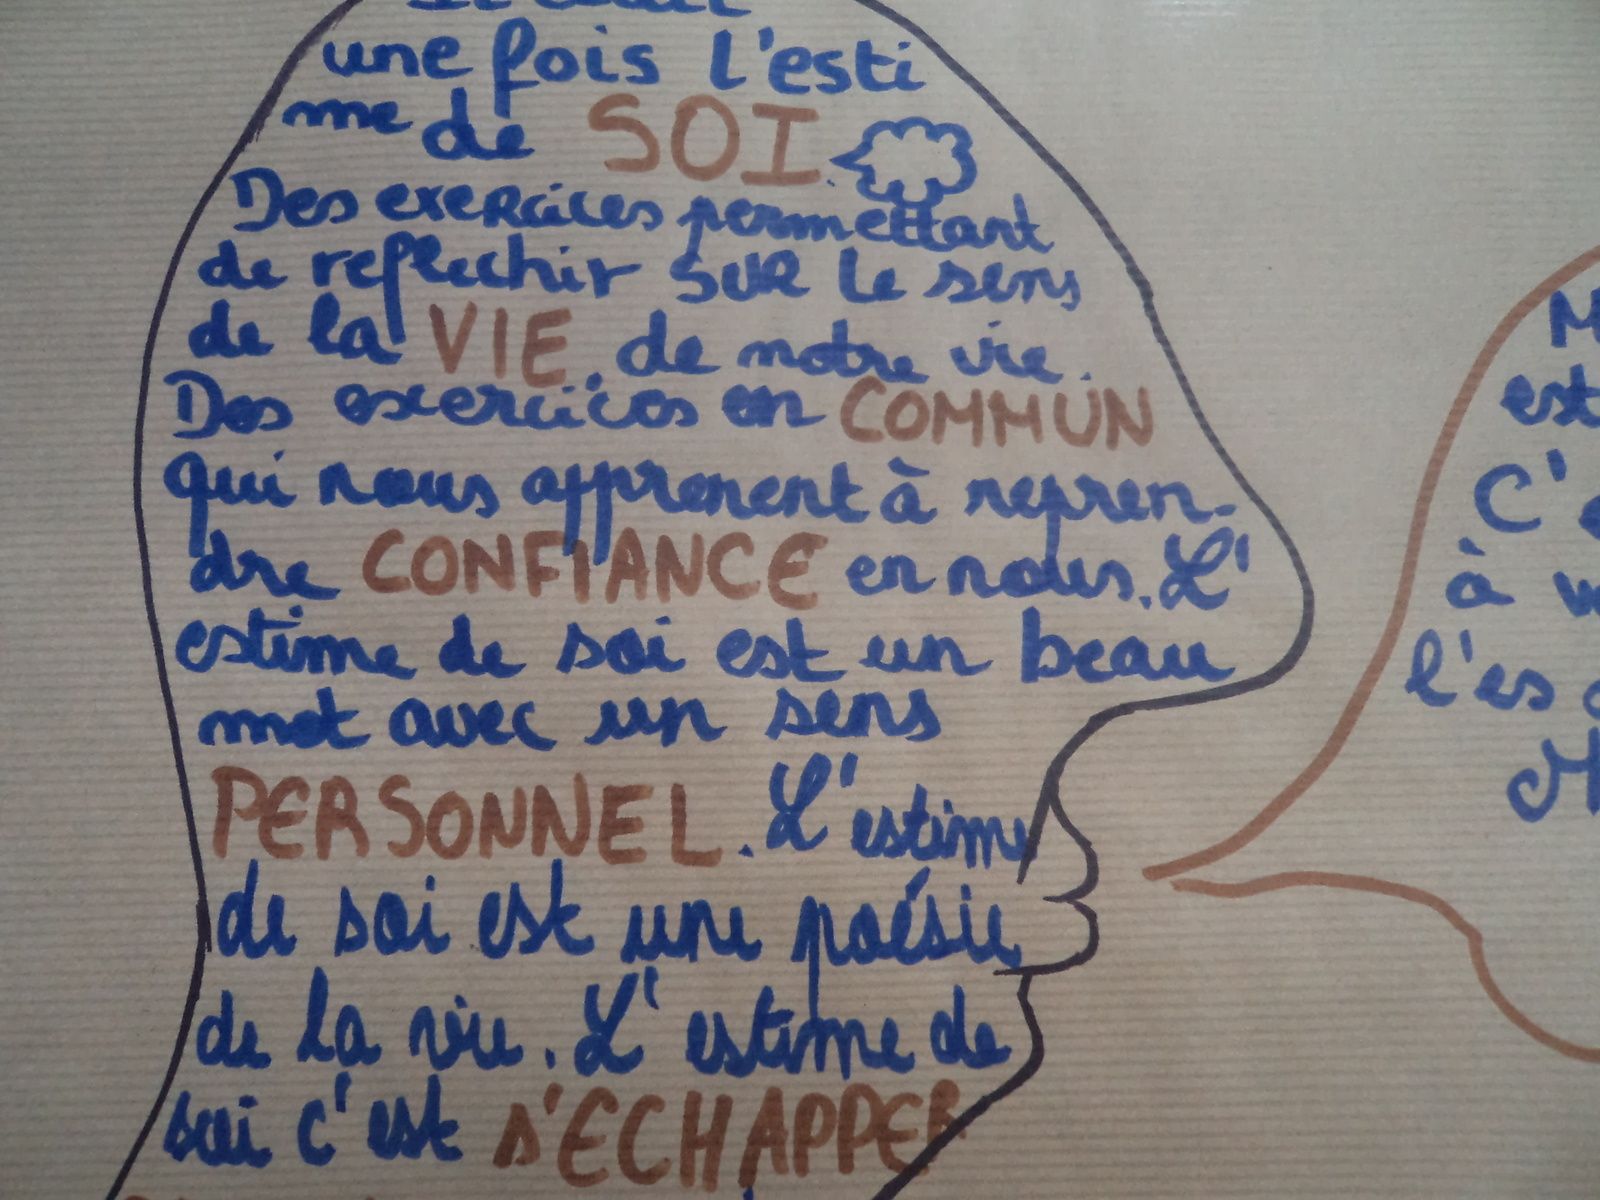 Il était
une fois l'esti
me de SOI.
Des exercices permettant
de reflechir sur le sens
de la VIE, de notre vie.
Des exercices en COMMUN
qui nous apprenent à repren-
dre CONFIANCE en nous. L'
estime de soi est un beau
mot avec un sens
PERSONNEL. L'estime
de soi est une poésie
de la vie. L'estime de
soi c'est s'ECHAPPER
est
C'
à
l'es